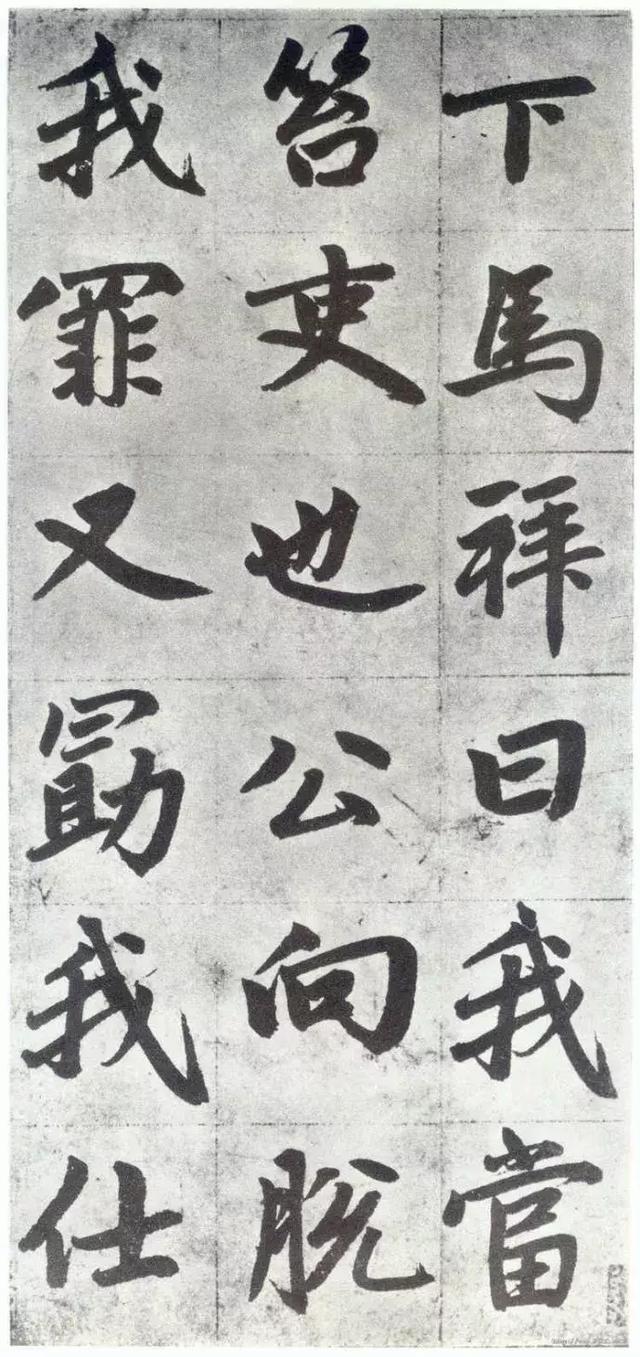 下馬拜曰我當
笞吏也公向脫
我罪又勖我仕